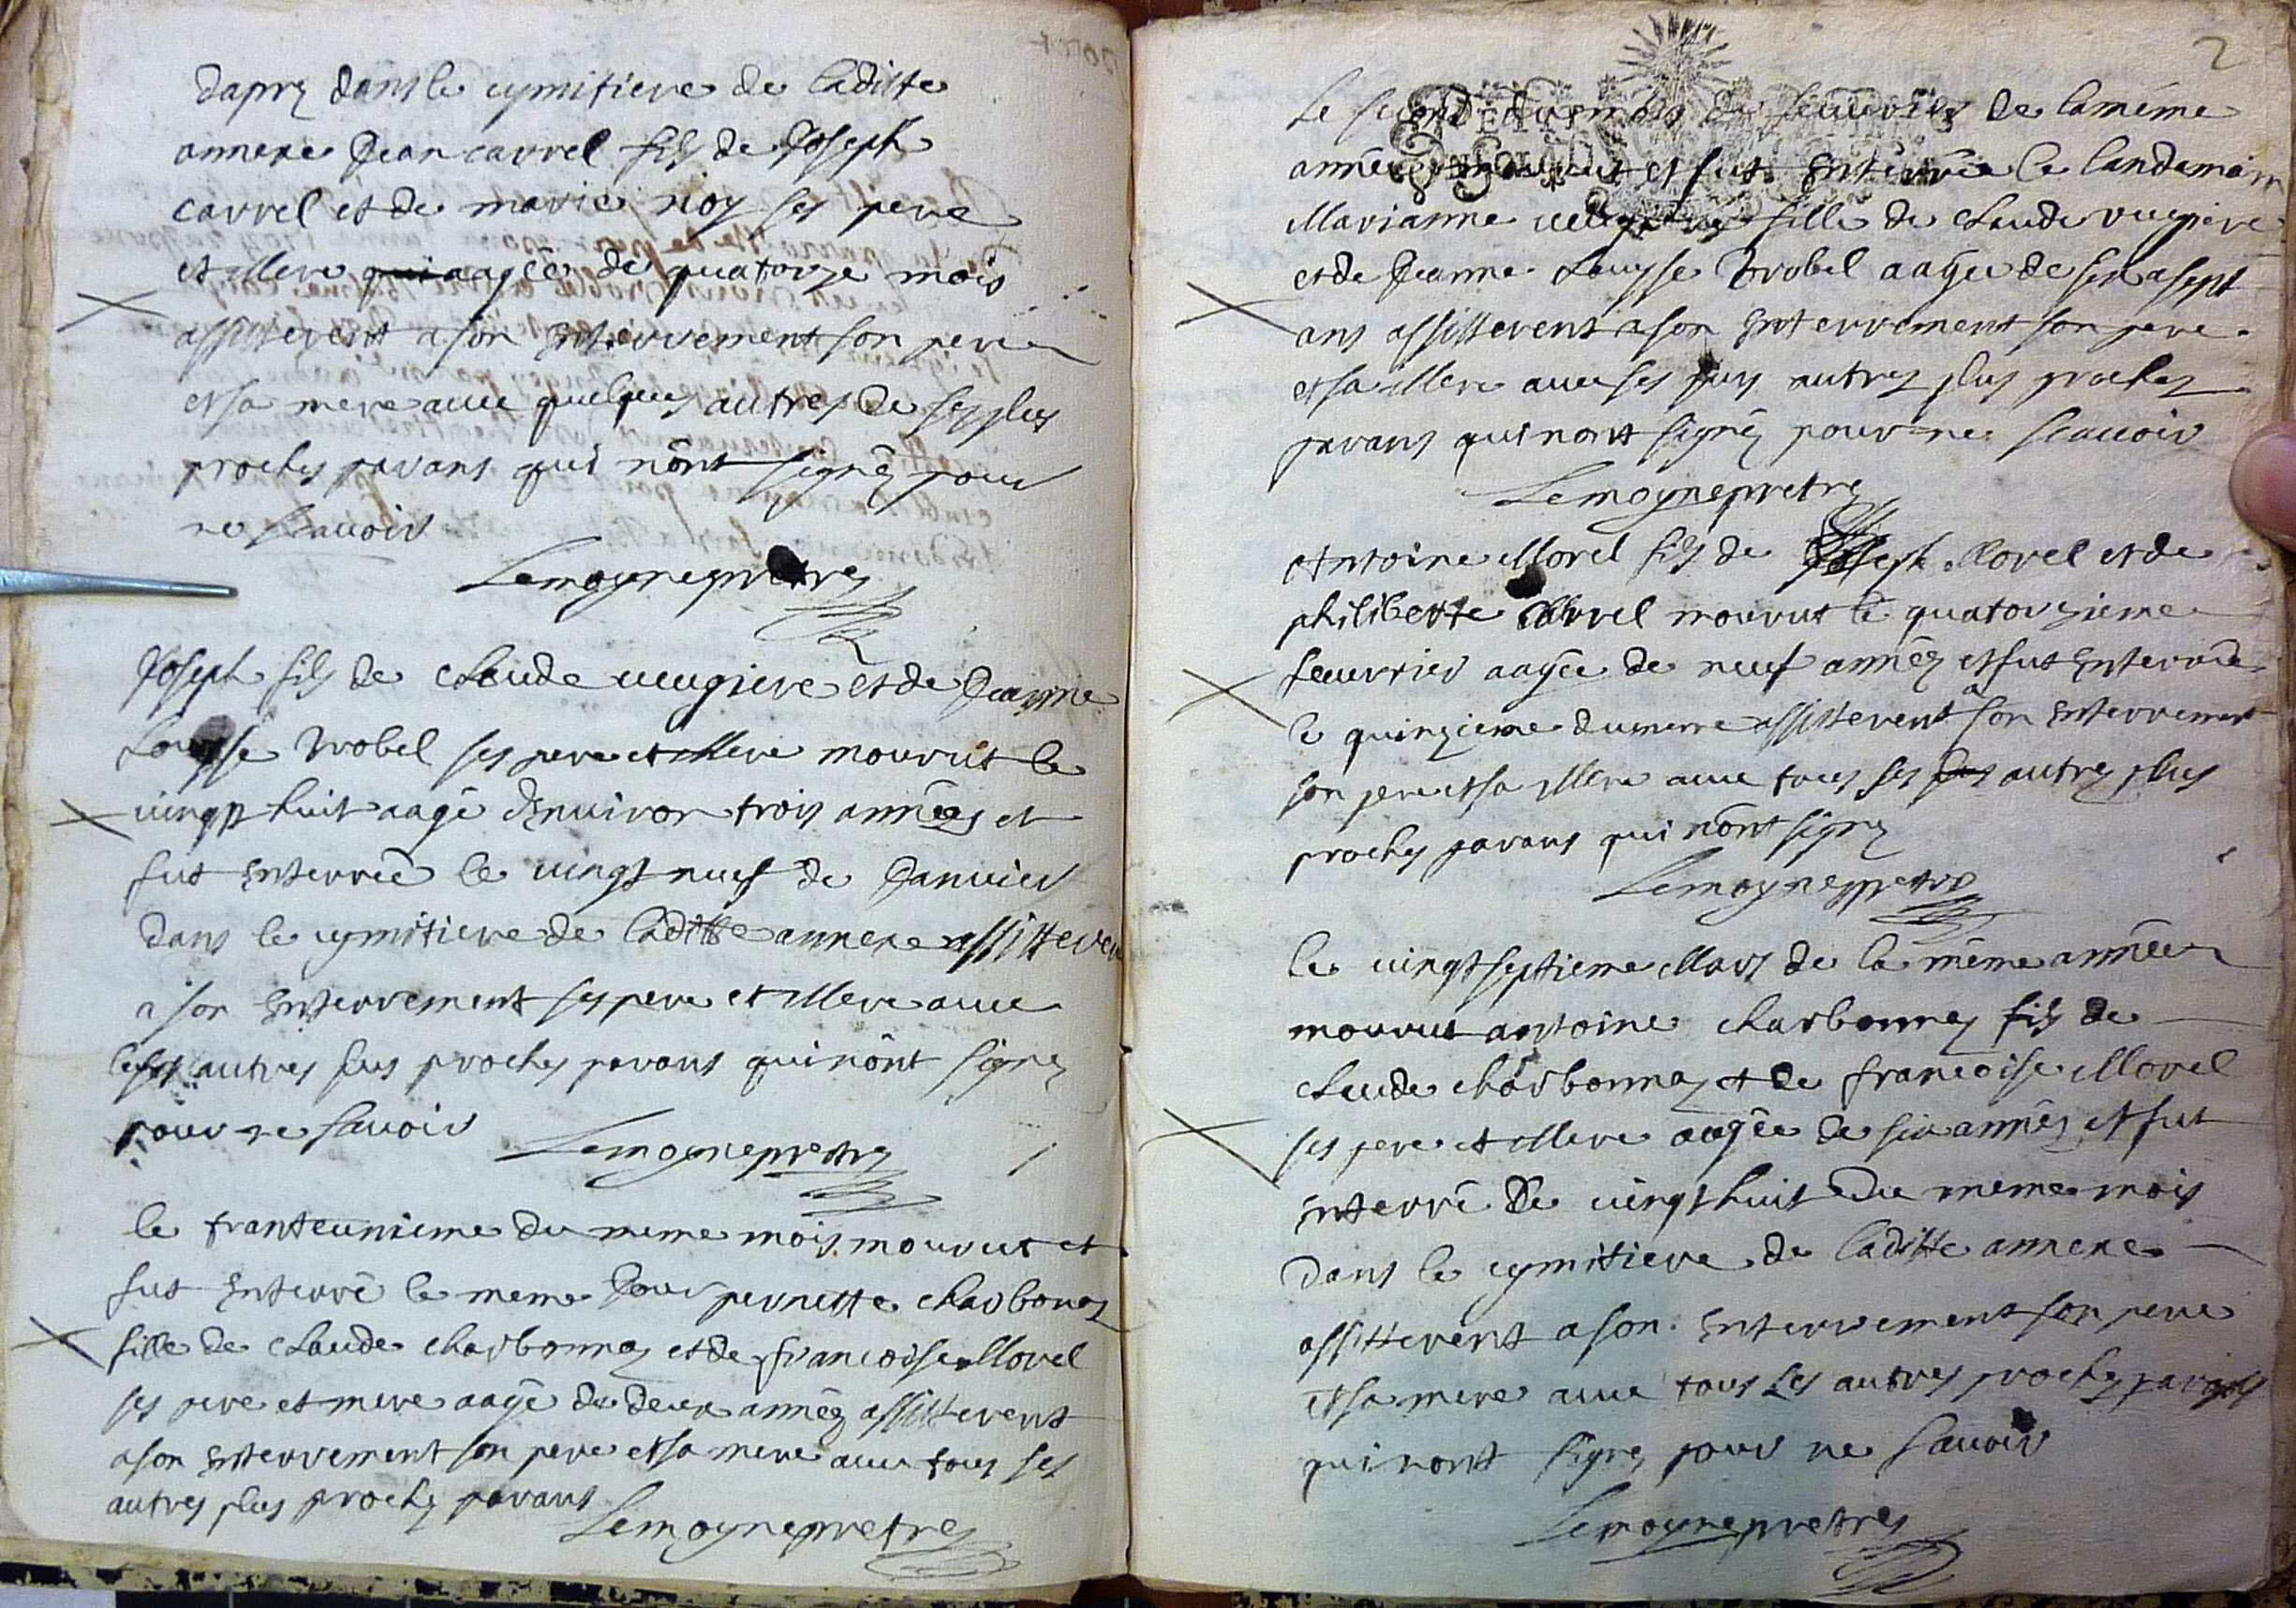 dapres dans le cymitiere de laditte
annexe Jean carrel fils de Joseph
carrel et de marie nioy ses pere
et Mere qui aagée de quatorze mois
assisterent a son Enterrement son pere
et sa mere avec quelques autres de ses plus
proches parans qui nônt signés pour
ne sauoir
Lemoyne pretre
Joseph fils de Claude veugiere et de Jeanne
Louysse Trobel ses pere et Mere mourut le
vingt huit aagé denuiron trois années et
fut Enterreé le vingt neuf de Januier
dans le cymitiere de laditte annexe assisteren
a son Enterrement ses pere et Mere auec
autres plus proches parans qui nônt signes
pour ne sauoir
Lemoyne pretre
le tranteunieme du meme mois mourut et
fut Enterré le meme Jour pernette charbonay
fille de Claude charbonnay et de francoise Morel
ses pere et mere aagé de deux années assisterent
a son Enterrement son pere et sa mere auec tous ses
autres plus proches parans
Lemoyne pretre
2
Le second du mois de feuvrier de la méme
année mourut et fut Enterrée le landemain
Marianne veugiere fille de Claude veugiere
et de Jeanne Louysse Trobel aagée de six a sept
ans assisterent a son Enterrement son pere
et sa Mere auec ses autres plus proches
parans qui nont signés pour ne scauoir
Lemoyne pretre
Antoine Morel fils de Joseph Morel et de
philiberte Morel mourut le quatorzieme
feuvrier aagée de neuf années et fut Enterrée
le quinzieme du meme assisterent a son Enterrement
son pere et sa Mere auec tous ses autres plus
proches parans qui nônt signes
Lemoyne pretre
le vingt septieme Mars de la méme année
mourut antoine charbonnay fils de
Claude charbonnay et de francoise Morel
ses pere et Mere aagée de six années et fut
Enterré le vingt huit du meme mois
dans le cymitiere de laditte annexe
assisterent a son Enterrement son pere
et sa mere auec tous les autres proches parans
qui nont signes pour ne sauoir
Lemoyne pretre